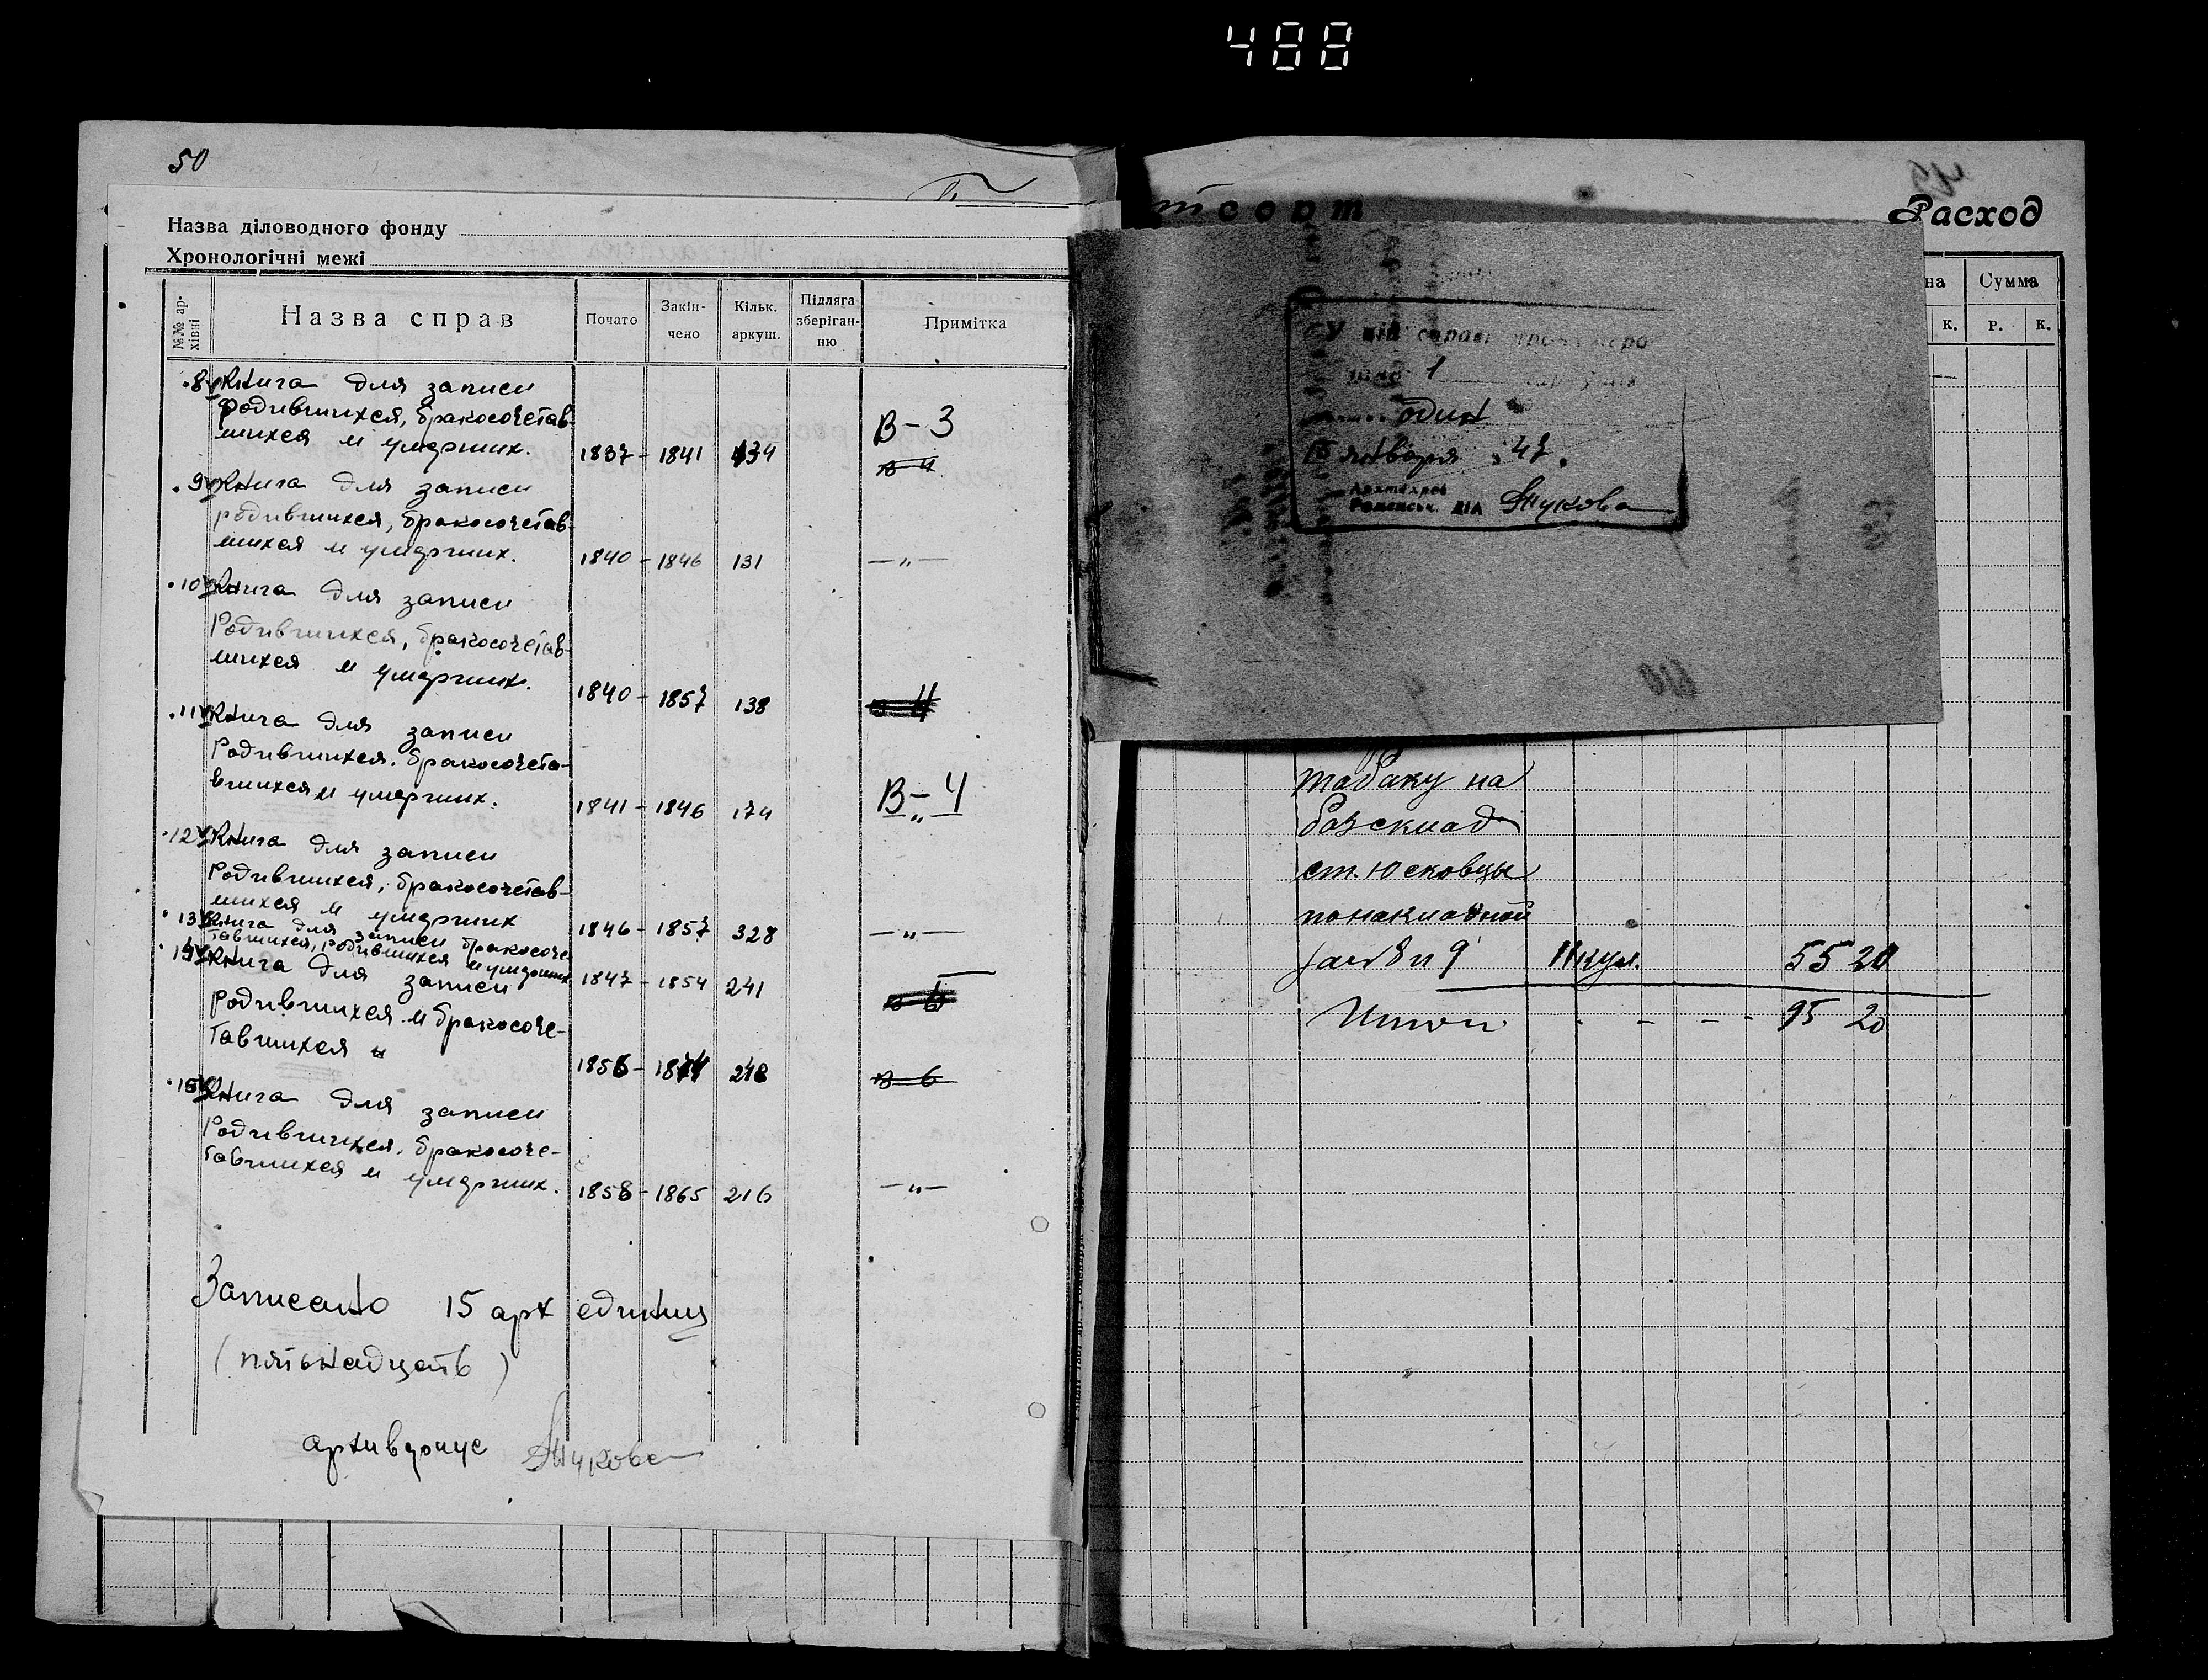 488
50
Назва діловодного фонду
Хронологічні межі
№№ ар-
хівні
Назва справ
Почато
Закін-
чено
Кільк.
аркуш.
Підляга
зберіган-
ню
Примітка
8 Книга для записи
родившихся, бракосочетав-
шихся и умерших. 1837 - 1841 134 В-3
9 Книга для записи
родившихся, бракосочетав-
шихся и умерших. 1840 - 1846 131 — „ —
10 Книга для записи
Родившихся, бракосочетав-
шихся и умерших. 1840 - 1857 138
11 Книга для записи
Родившихся. бракосочета-
вшихся и умерших. 1841 - 1846 174 В-4
— „ —
12 Книга для записи
Родившихся, бракосочетав-
шихся и умерших 1846 - 1857 328 — „ —
13 Книга для записи бракосоче-
тавшихся, родившихся и умерших 1847 - 1854 241
14 Книга для записи
Родившихся и бракосоче-
тавшихся 1856 -
15 Книга для записи
Родившихся. бракосоче-
тавшихся и умерших. 1858 - 1865 216 — „ —
Записано 15 арх единиц
(пятьнадцать)
архивариус Жукова
Расход
Сумма
к. р. к.
У цій справі
1
один
января 47.
Архтехред
Роменськ. ДІА Жукова
табаку на
ст. Юсковцы
по накладной
55 20
Итого - - - 95 20